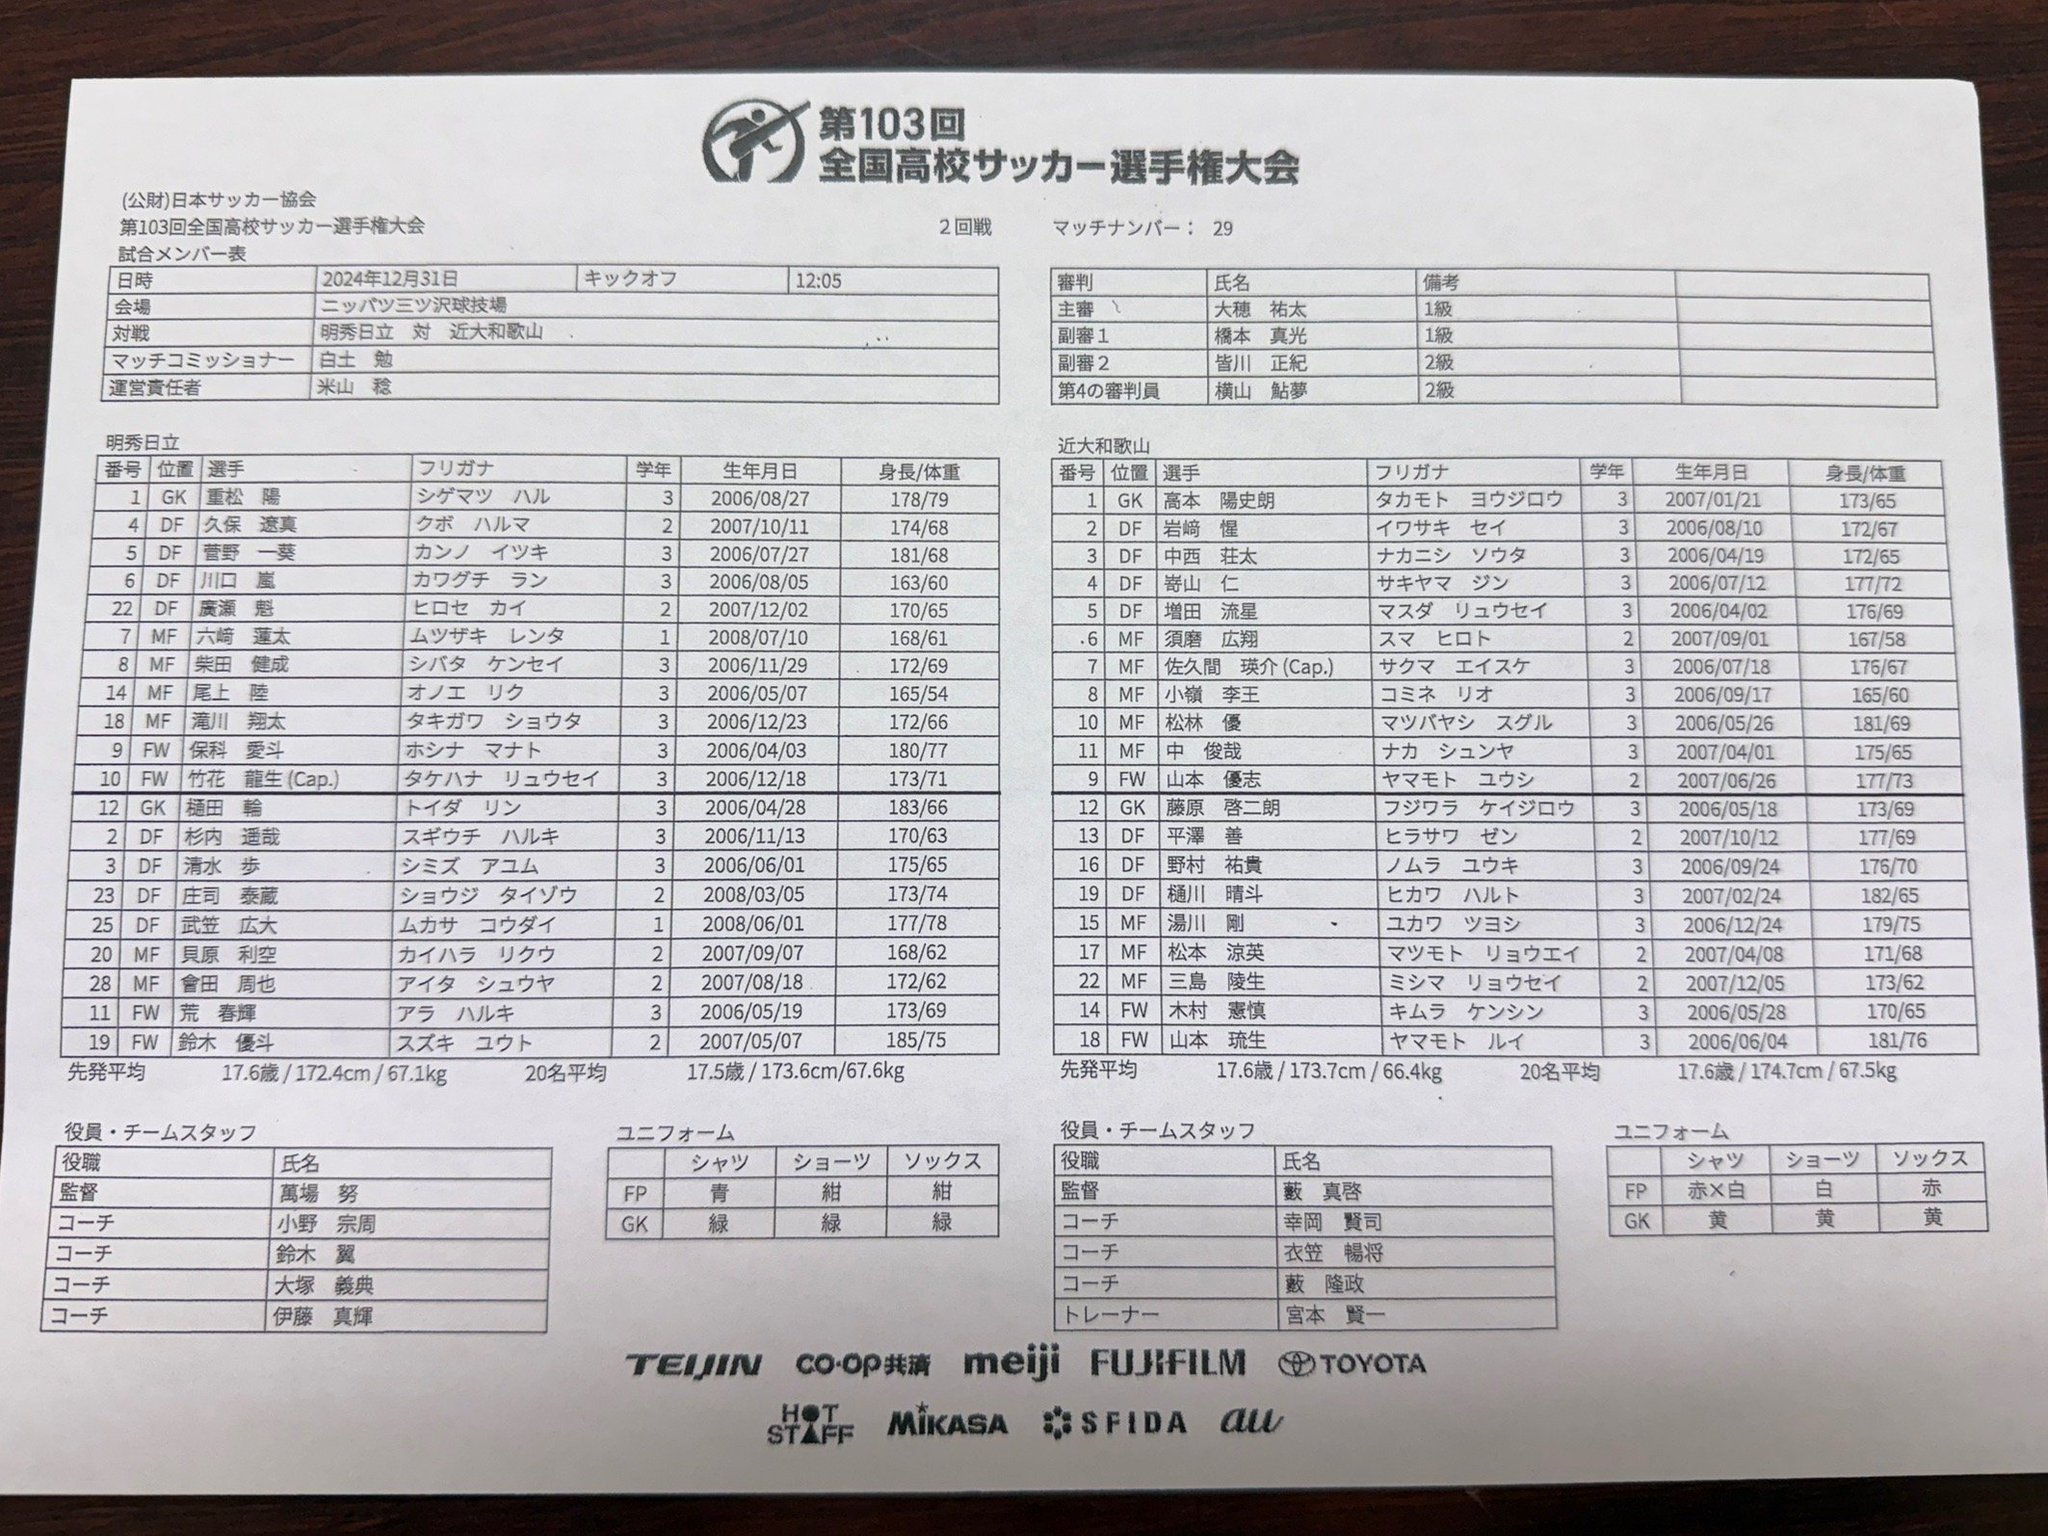 第103回
全国高校サッカー選手権大会
(公財)日本サッカー協会
第103回全国高校サッカー選手権大会 2回戦 マッチナンバー： 29
試合メンバー表
日時 2024年12月31日 キックオフ 12:05
会場 ニッパツ三ツ沢球技場
対戦 明秀日立 対 近大和歌山
マッチコミッショナー 白土 勉
運営責任者 米山 稔
審判 氏名 備考
主審 大穂 祐太 1級
副審1 橋本 真光 1級
副審2 皆川 正紀 2級
第4の審判員 横山 鮎夢 2級
明秀日立
番号 位置 選手 フリガナ 学年 生年月日 身長/体重
1 GK 重松 陽 シゲマツ ハル 3 2006/08/27 178/79
4 DF 久保 遼真 クボ ハルマ 2 2007/10/11 174/68
5 DF 菅野 一葵 カンノ イツキ 3 2006/07/27 181/68
6 DF 川口 嵐 カワグチ ラン 3 2006/08/05 163/60
22 DF 廣瀬 魁 ヒロセ カイ 2 2007/12/02 170/65
7 MF 六﨑 蓮太 ムツザキ レンタ 1 2008/07/10 168/61
8 MF 柴田 健成 シバタ ケンセイ 3 2006/11/29 172/69
14 MF 尾上 陸 オノエ リク 3 2006/05/07 165/54
18 MF 滝川 翔太 タキガワ ショウタ 3 2006/12/23 172/66
9 FW 保科 愛斗 ホシナ マナト 3 2006/04/03 180/77
10 FW 竹花 龍生 (Cap.) タケハナ リュウセイ 3 2006/12/18 173/71
12 GK 樋田 輪 トイダ リン 3 2006/04/28 183/66
2 DF 杉内 遥哉 スギウチ ハルキ 3 2006/11/13 170/63
3 DF 清水 歩 シミズ アユム 3 2006/06/01 175/65
23 DF 庄司 泰蔵 ショウジ タイゾウ 2 2008/03/05 173/74
25 DF 武笠 広大 ムカサ コウダイ 1 2008/06/01 177/78
20 MF 貝原 利空 カイハラ リクウ 2 2007/09/07 168/62
28 MF 會田 周也 アイタ シュウヤ 2 2007/08/18 172/62
11 FW 荒 春輝 アラ ハルキ 3 2006/05/19 173/69
19 FW 鈴木 優斗 スズキ ユウト 2 2007/05/07 185/75
先発平均 17.6歳 / 172.4cm / 67.1kg 20名平均 17.5歳 / 173.6cm/67.6kg
近大和歌山
番号 位置 選手 フリガナ 学年 生年月日 身長/体重
1 GK 高本 陽史朗 タカモト ヨウジロウ 3 2007/01/21 173/65
2 DF 岩﨑 惺 イワサキ セイ 3 2006/08/10 172/67
3 DF 中西 荘太 ナカニシ ソウタ 3 2006/04/19 172/65
4 DF 嵜山 仁 サキヤマ ジン 3 2006/07/12 177/72
5 DF 増田 流星 マスダ リュウセイ 3 2006/04/02 176/69
6 MF 須磨 広翔 スマ ヒロト 2 2007/09/01 167/58
7 MF 佐久間 瑛介 (Cap.) サクマ エイスケ 3 2006/07/18 176/67
8 MF 小嶺 李王 コミネ リオ 3 2006/09/17 165/60
10 MF 松林 優 マツバヤシ スグル 3 2006/05/26 181/69
11 MF 中 俊哉 ナカ シュンヤ 3 2007/04/01 175/65
9 FW 山本 優志 ヤマモト ユウシ 2 2007/06/26 177/73
12 GK 藤原 啓二朗 フジワラ ケイジロウ 3 2006/05/18 173/69
13 DF 平澤 善 ヒラサワ ゼン 2 2007/10/12 177/69
16 DF 野村 祐貴 ノムラ ユウキ 3 2006/09/24 176/70
19 DF 樋川 晴斗 ヒカワ ハルト 3 2007/02/24 182/65
15 MF 湯川 剛 ユカワ ツヨシ 3 2006/12/24 179/75
17 MF 松本 涼英 マツモト リョウエイ 2 2007/04/08 171/68
22 MF 三島 陵生 ミシマ リョウセイ 2 2007/12/05 173/62
14 FW 木村 憲慎 キムラ ケンシン 3 2006/05/28 170/65
18 FW 山本 琉生 ヤマモト ルイ 3 2006/06/04 181/76
先発平均 17.6歳 / 173.7cm / 66.4kg 20名平均 17.6歳 / 174.7cm / 67.5kg
役員・チームスタッフ
役職 氏名
監督 萬場 努
コーチ 小野 宗周
コーチ 鈴木 翼
コーチ 大塚 義典
コーチ 伊藤 真輝
ユニフォーム
シャツ ショーツ ソックス
FP 青 紺 紺
GK 緑 緑 緑
役員・チームスタッフ
役職 氏名
監督 藪 真啓
コーチ 幸岡 賢司
コーチ 衣笠 暢将
コーチ 藪 隆政
トレーナー 宮本 賢一
ユニフォーム
シャツ ショーツ ソックス
FP 赤×白 白 赤
GK 黄 黄 黄
TEIJIN CO·OP共済 meiji FUJIFILM TOYOTA
HOT STAFF MIKASA SFIDA au